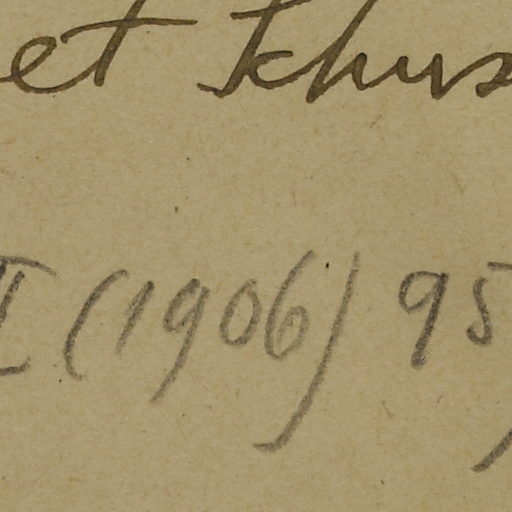 et Schus
I (1906) 95